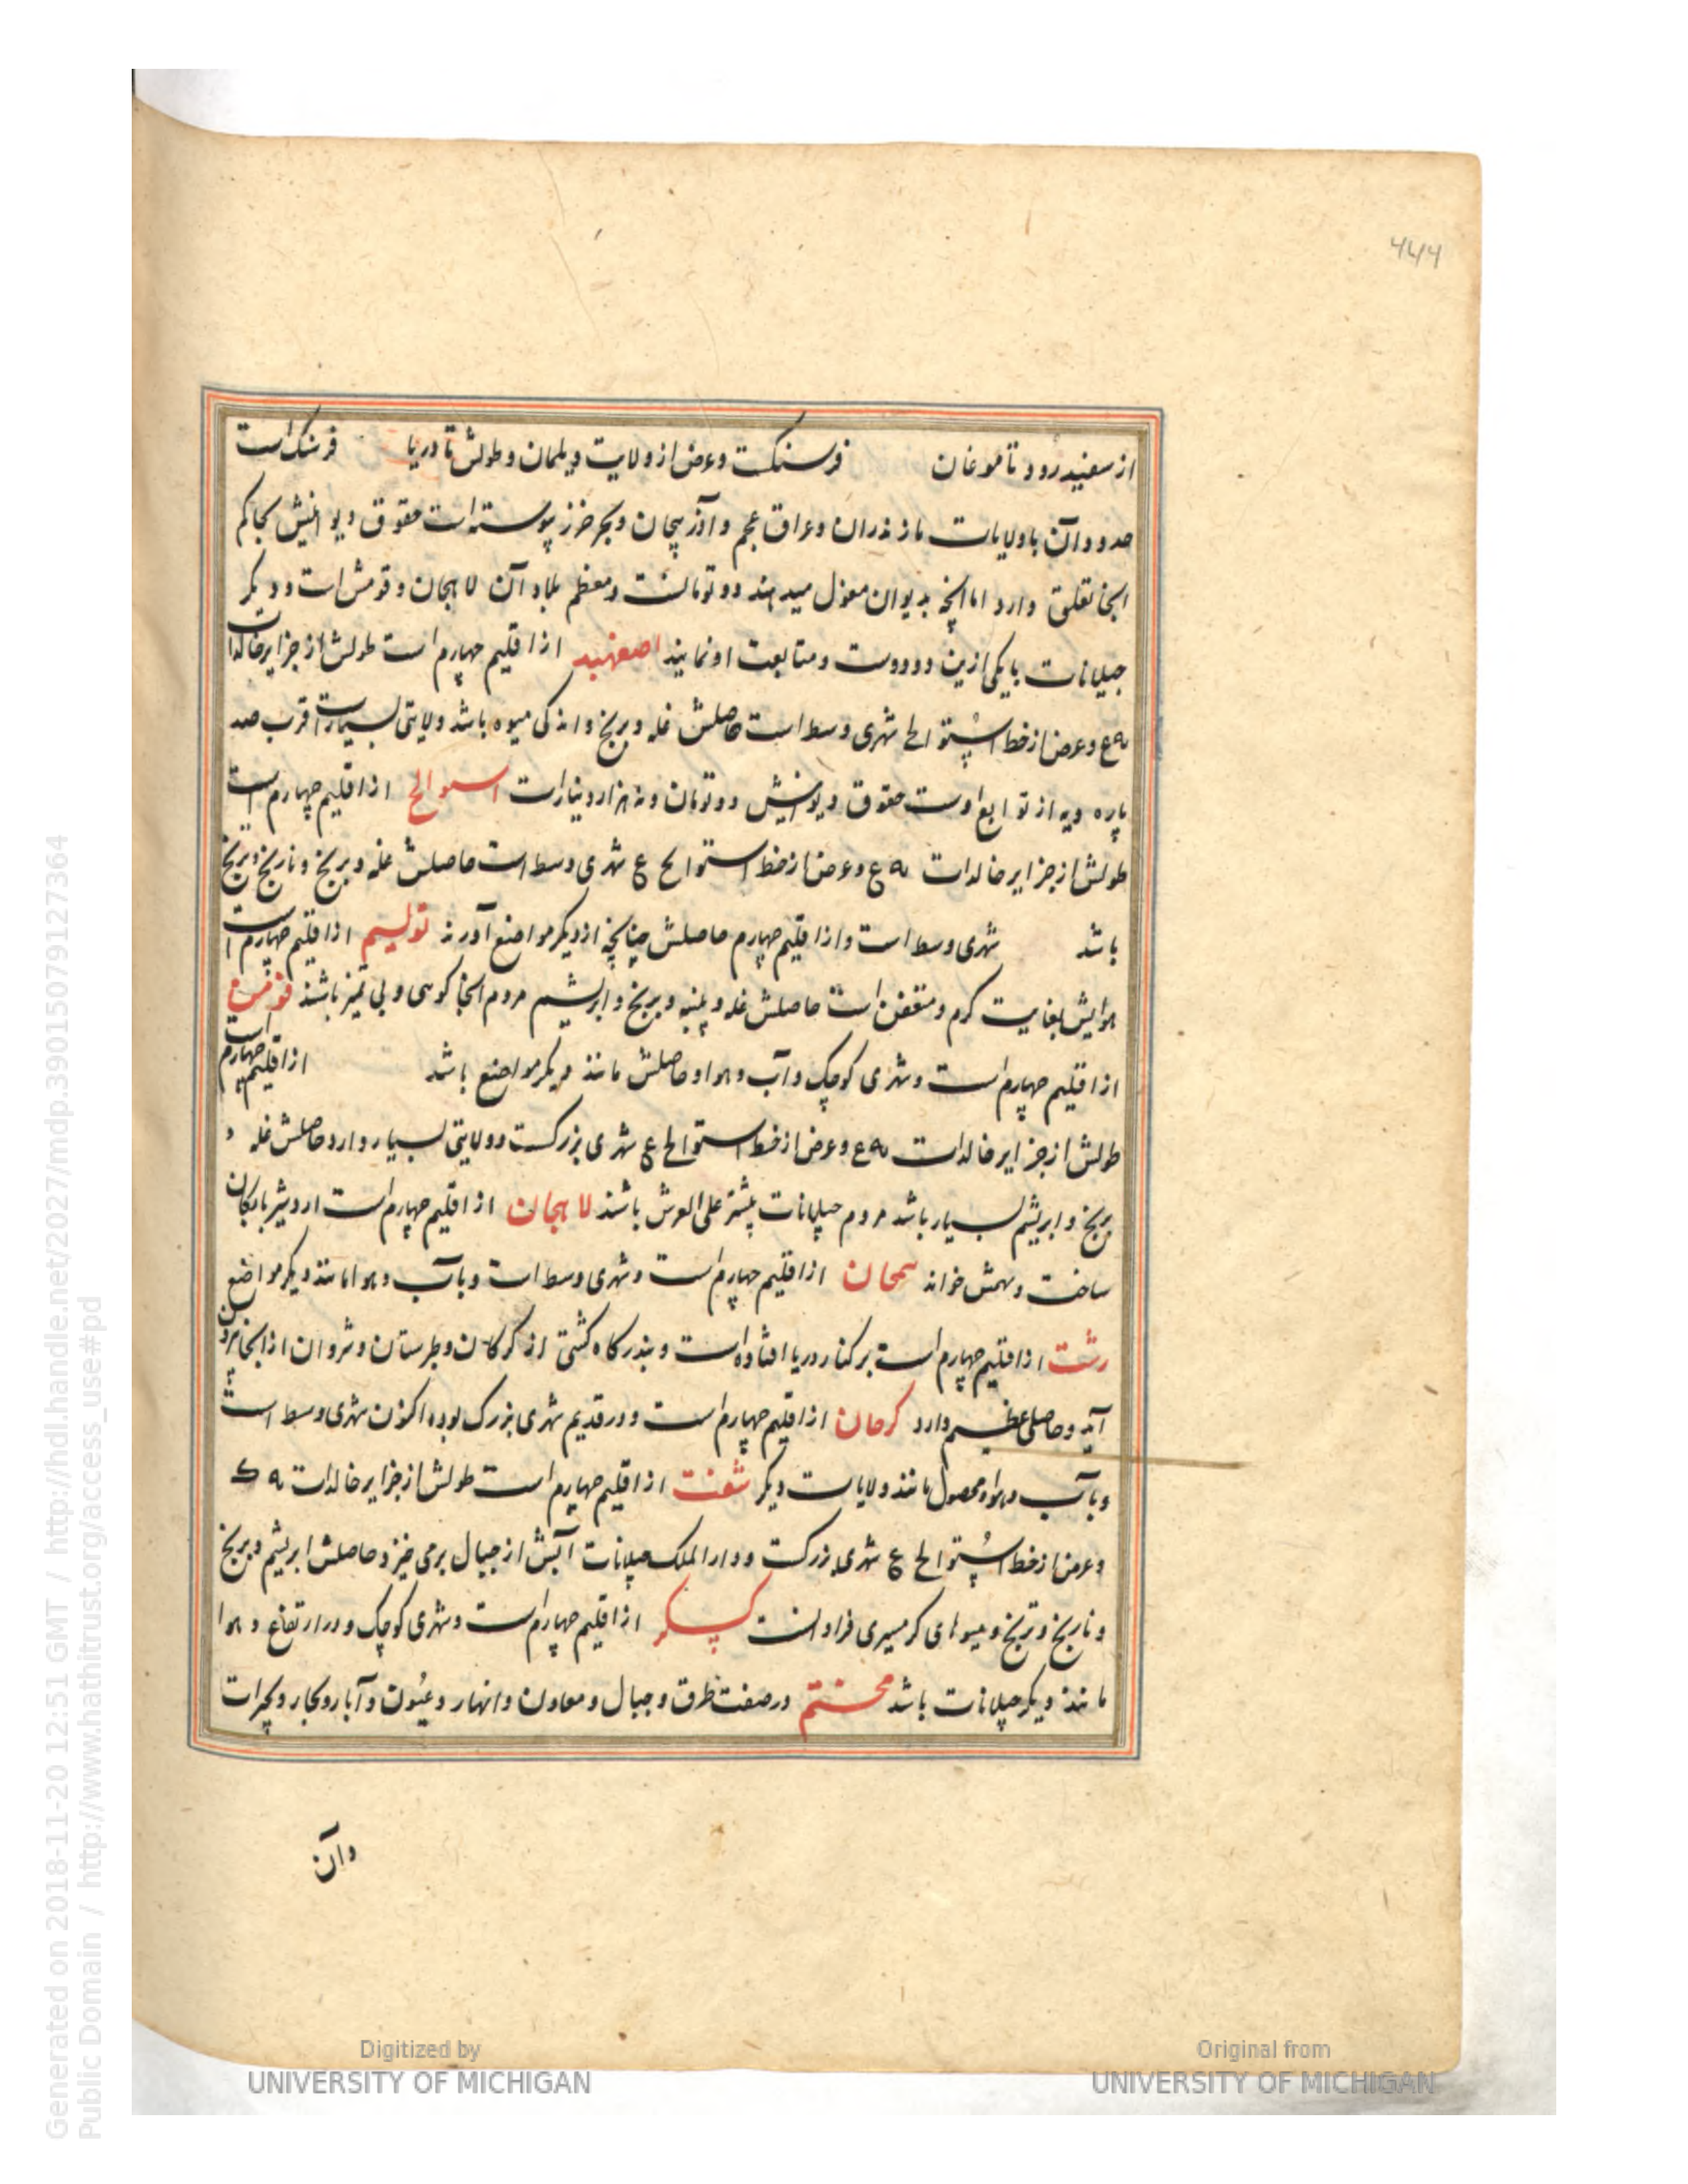 ۴۴۴
از سفیدرود تا موغان فرسنکست و عرض از ولایت دیلمان و طولش تا دریا فرسنک است
حدود آن با ولایات مازندران و عراق عجم و آذربیجان و بحر خزر پیوسته است حقوق دیوانیش بحاکم
انجا تعلق دارد اما انچه بدیوان مغول میدهند دو تومانست و معظم بلاد آن لاهجان و قومش است و دیکر
جیلانات با یکی ازین دو دوست و متابعت او نمایند اصفهبد از اقلیم چهارم است طولش از جزایر خالدات
عه ع و عرض از خط استوا لح شهری وسط است حاصلش غله و برنج و اندکی میوه باشد ولایتی بسیارست قرب صد
پاره دیه از توابع اوست حقوق دیوانیش دو تومان و نه هزار دینارست اسوالح از اقلیم چهارم است
طولش از جزایر خالدات عه ع و عرض از خط استوا لح ع شهری وسط است حاصلش غله و برنج و نارنج و ترنج
باشد شهری وسط است و از اقلیم چهارم حاصلش چنانچه از دیکر مواضع آورند تولیم از اقلیم چهارم است
هوایش بغایت کرم و متعفن است حاصلش غله و پنبه و برنج و ابریشم مردم انجا کوهی و بی تمیز باشند فومن
از اقلیم چهارم است و شهری کوچک و آب و هوا و حاصلش مانند دیکر مواضع باشد از اقلیم چهارم است
طولش از جزایر خالدات عه ع و عرض از خط استوا لح ع شهری بزرکست و ولایتی بسیار دارد حاصلش غله و
برنج و ابریشم بسیار باشد مردم جیلانات پیشتر علی العرش باشند لاهجان از اقلیم چهارم است اردشیر بابکان
ساخت و بهمش خواند سمحان از اقلیم چهارم است و شهری وسط است و بآب و هوا مانند دیکر مواضع
رشت از اقلیم چهارم است بر کنار دریا افتاده است و بندرکاه کشتی از کرکان و طبرستان و شروان از انجا بیرون
آید و حاصلی عظیم دارد کرجان از اقلیم چهارم است و در قدیم شهری بزرک بوده اکنون شهری وسط است
و بآب و هوا و محصول مانند ولایات دیکر شفت از اقلیم چهارم است طولش از جزایر خالدات عه ک
و عرض از خط استوا لح ع شهری بزرکست و دار الملک جیلانات آبش از جبال برمی خیزد حاصلش ابریشم و برنج
و نارنج و ترنج و میوهای کرمسیری فراوانست کسکر از اقلیم چهارم است و شهری کوچک و در ارتفاع و هوا
مانند دیکر جیلانات باشد مختتم در صفت طرق و جبال و معادن و انهار و عیون و آبار و بحار و بحیرات
وآن
Digitized by
UNIVERSITY OF MICHIGAN
Original from
UNIVERSITY OF MICHIGAN
Generated on 2018-11-20 12:51 GMT / http://hdl.handle.net/2027/mdp.39015079127364
Public Domain / http://www.hathitrust.org/access_use#pd